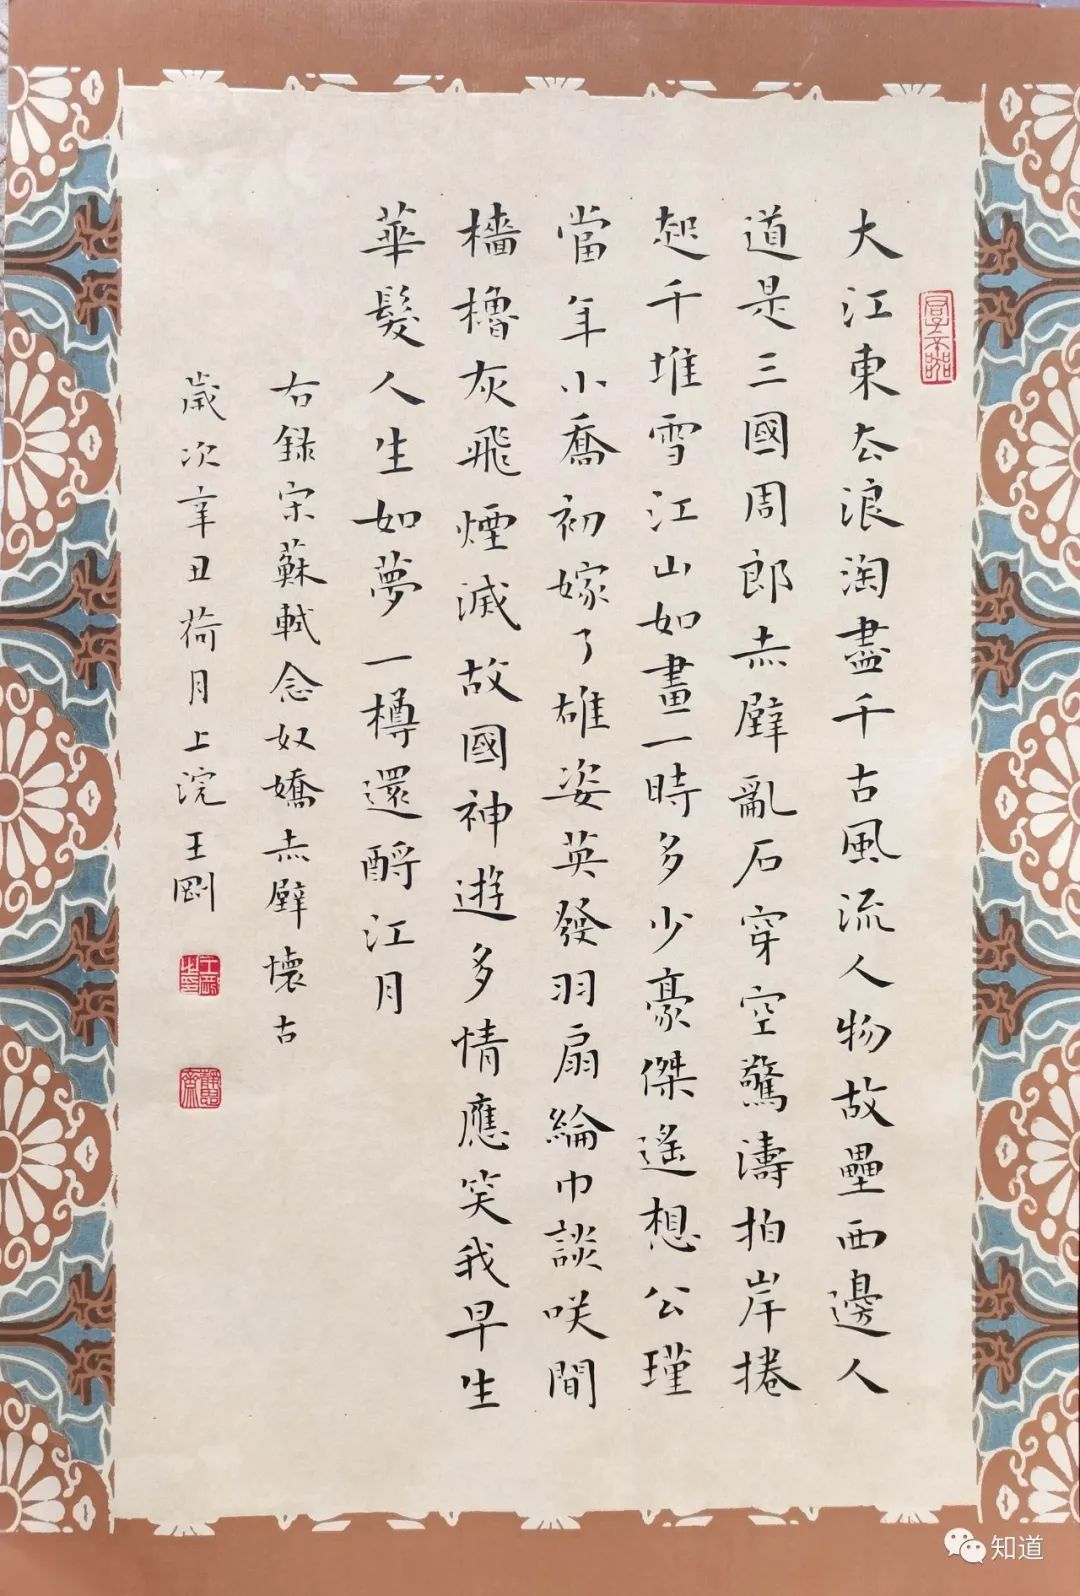 大江東去浪淘盡千古風流人物故壘西邊人
道是三國周郎赤壁亂石穿空驚濤拍岸捲
起千堆雪江山如畫一時多少豪傑遙想公瑾
當年小喬初嫁了雄姿英發羽扇綸巾談咲間
檣櫓灰飛煙滅故國神遊多情應笑我早生
華髮人生如夢一樽還酹江月
右録宋蘇軾念奴嬌赤壁懷古
歲次辛丑荷月上浣王剛
知道